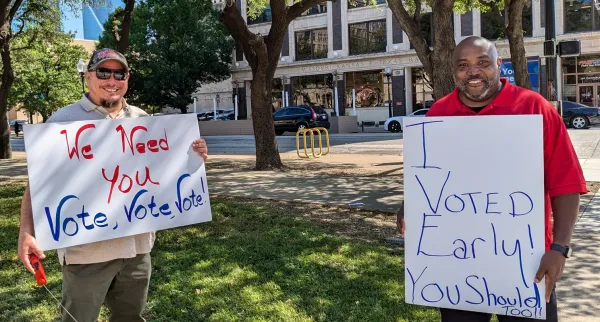 We Need
You
Vote, Vote, Vote!
I
VOTED
Early!
You Should
TOO!!